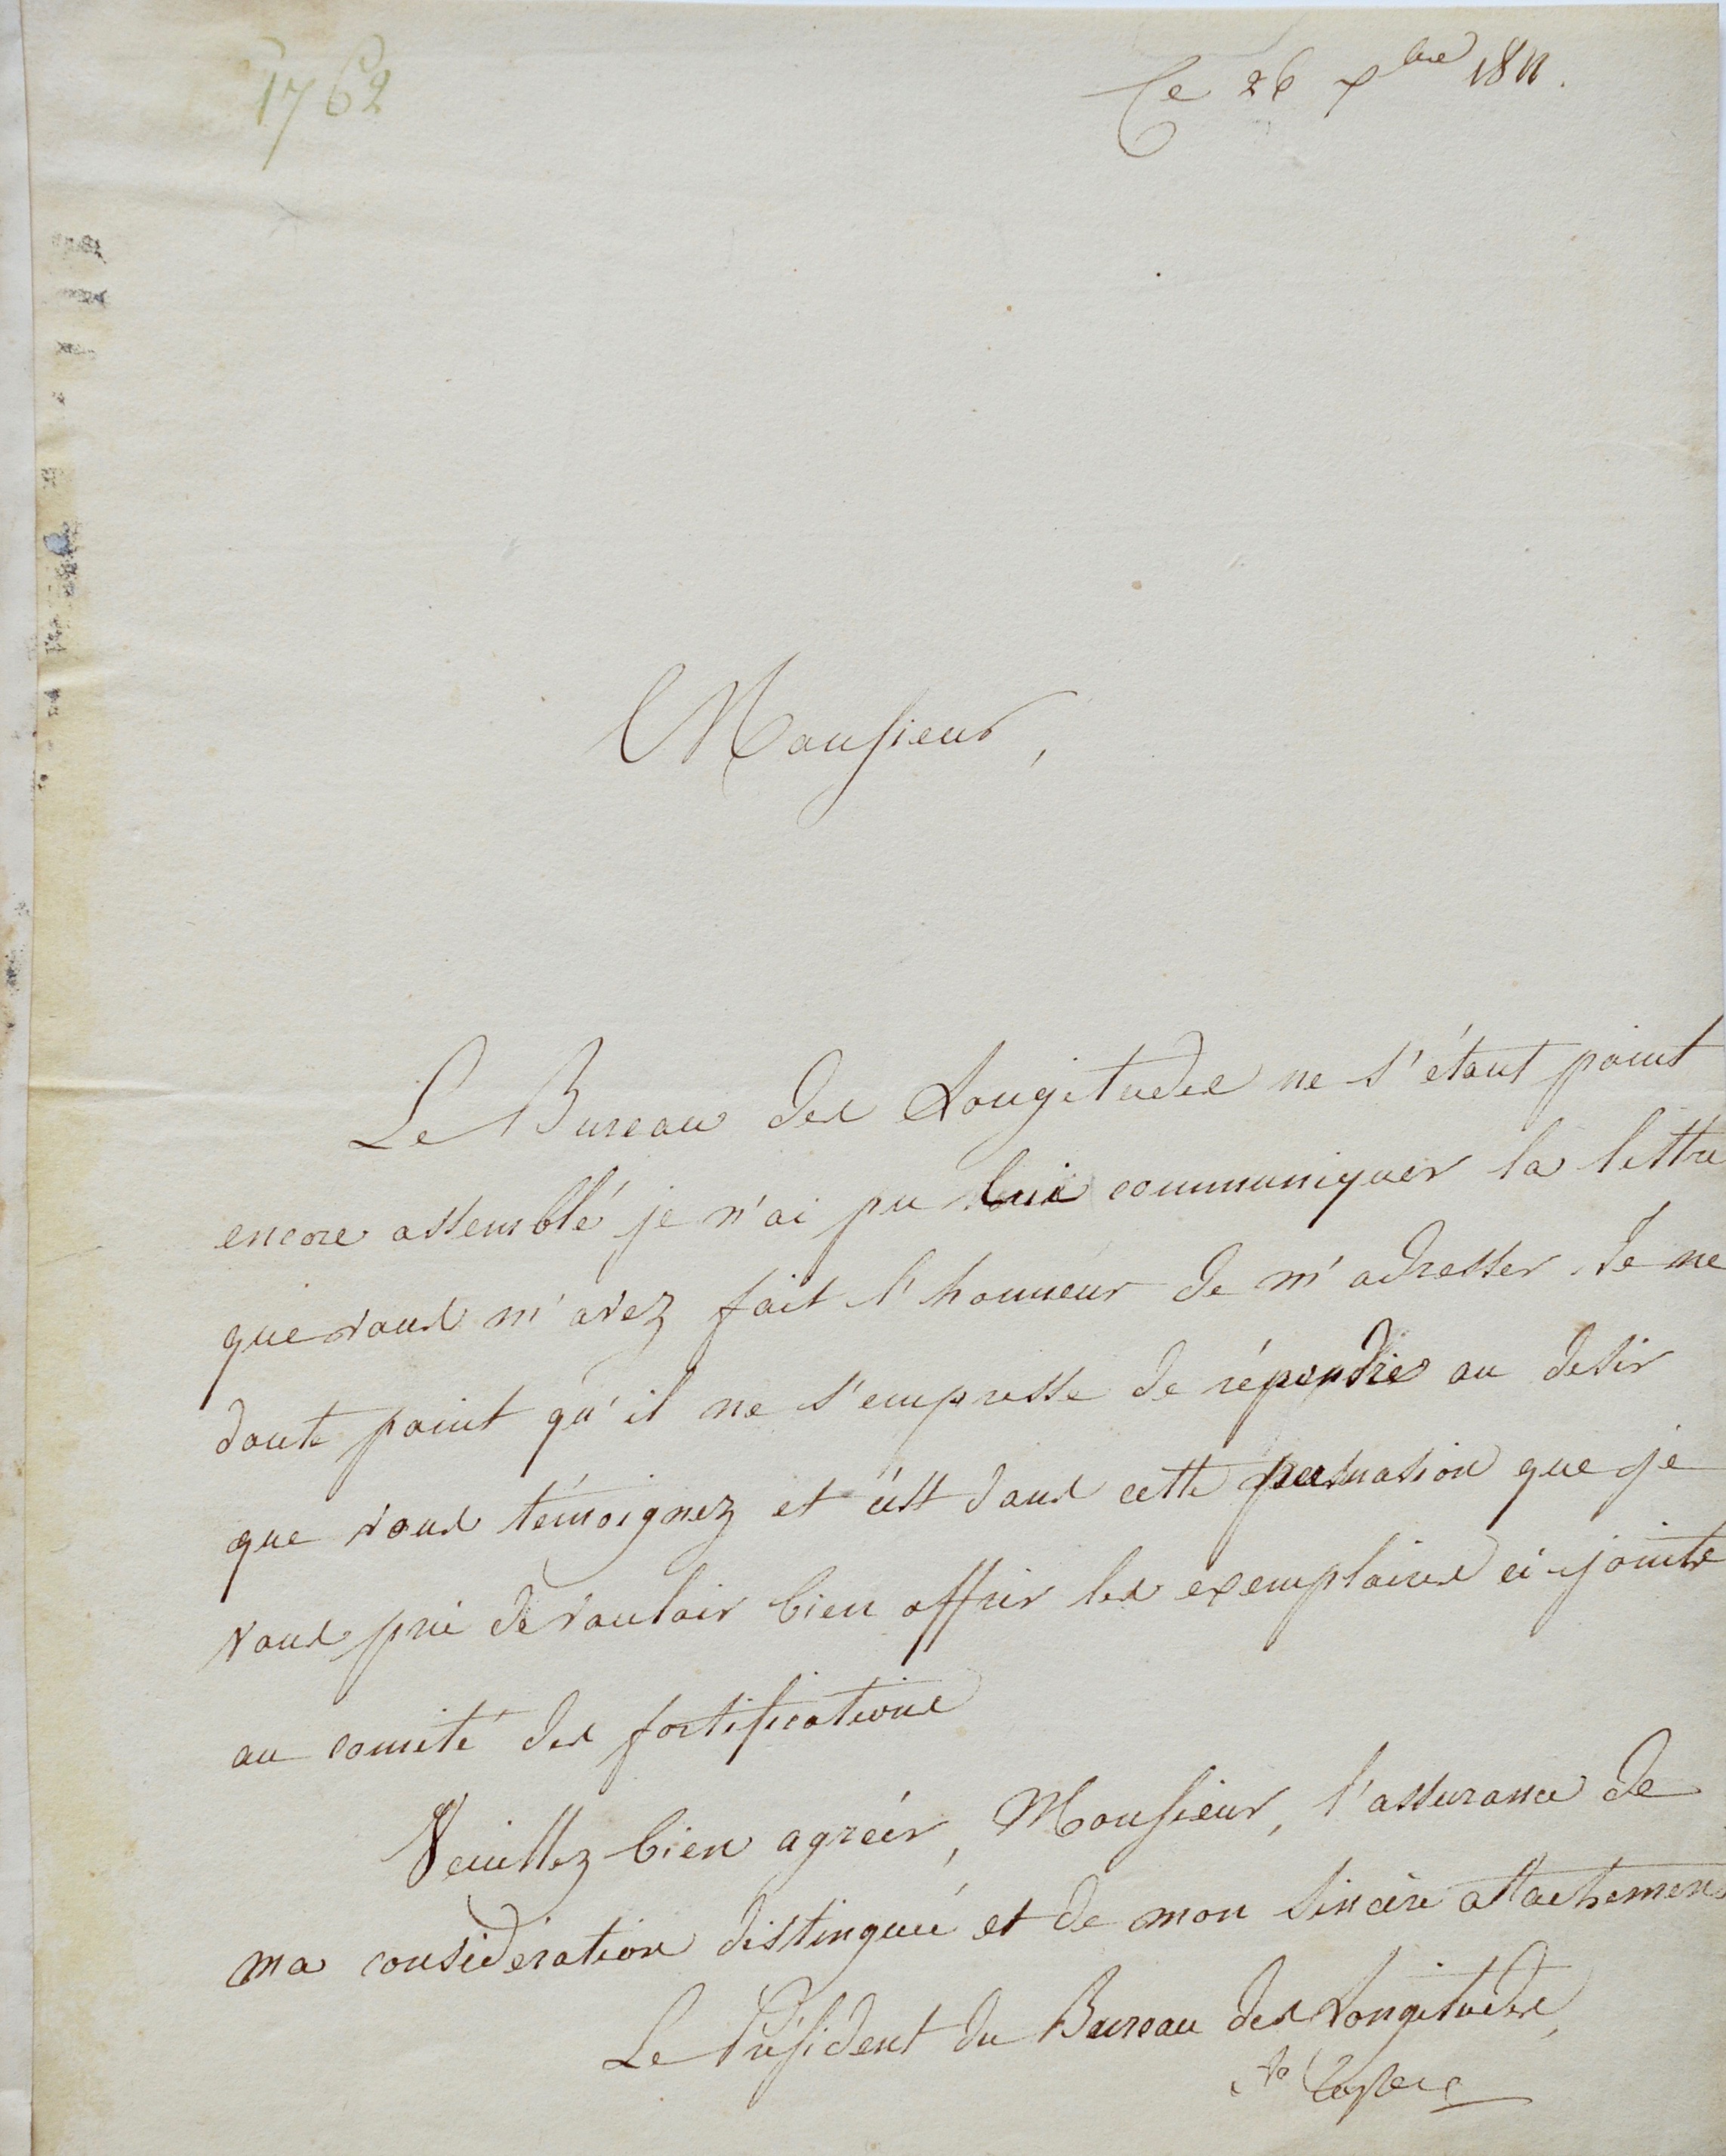 1762
Ce 26 xbre 1811.
Monsieur,
Le Bureau des Longitudes ne s'étant point
encore assemblé je n'ai pu lui communiquer la lettre
que vous m'avez fait l'honneur de m'adresser. Je ne
doute point qu'il ne s'empresse de répondre au desir
que vous témoignez et c'est dans cette persuasion que je
vous prie de vouloir bien offrir les exemplaires ci-joints
au comité des fortifications
Veuillez bien agréer, Monsieur, l'assurance de
ma considération distinguée et de mon sincère attachement
Le Président du Bureau des Longitudes,
Laplace